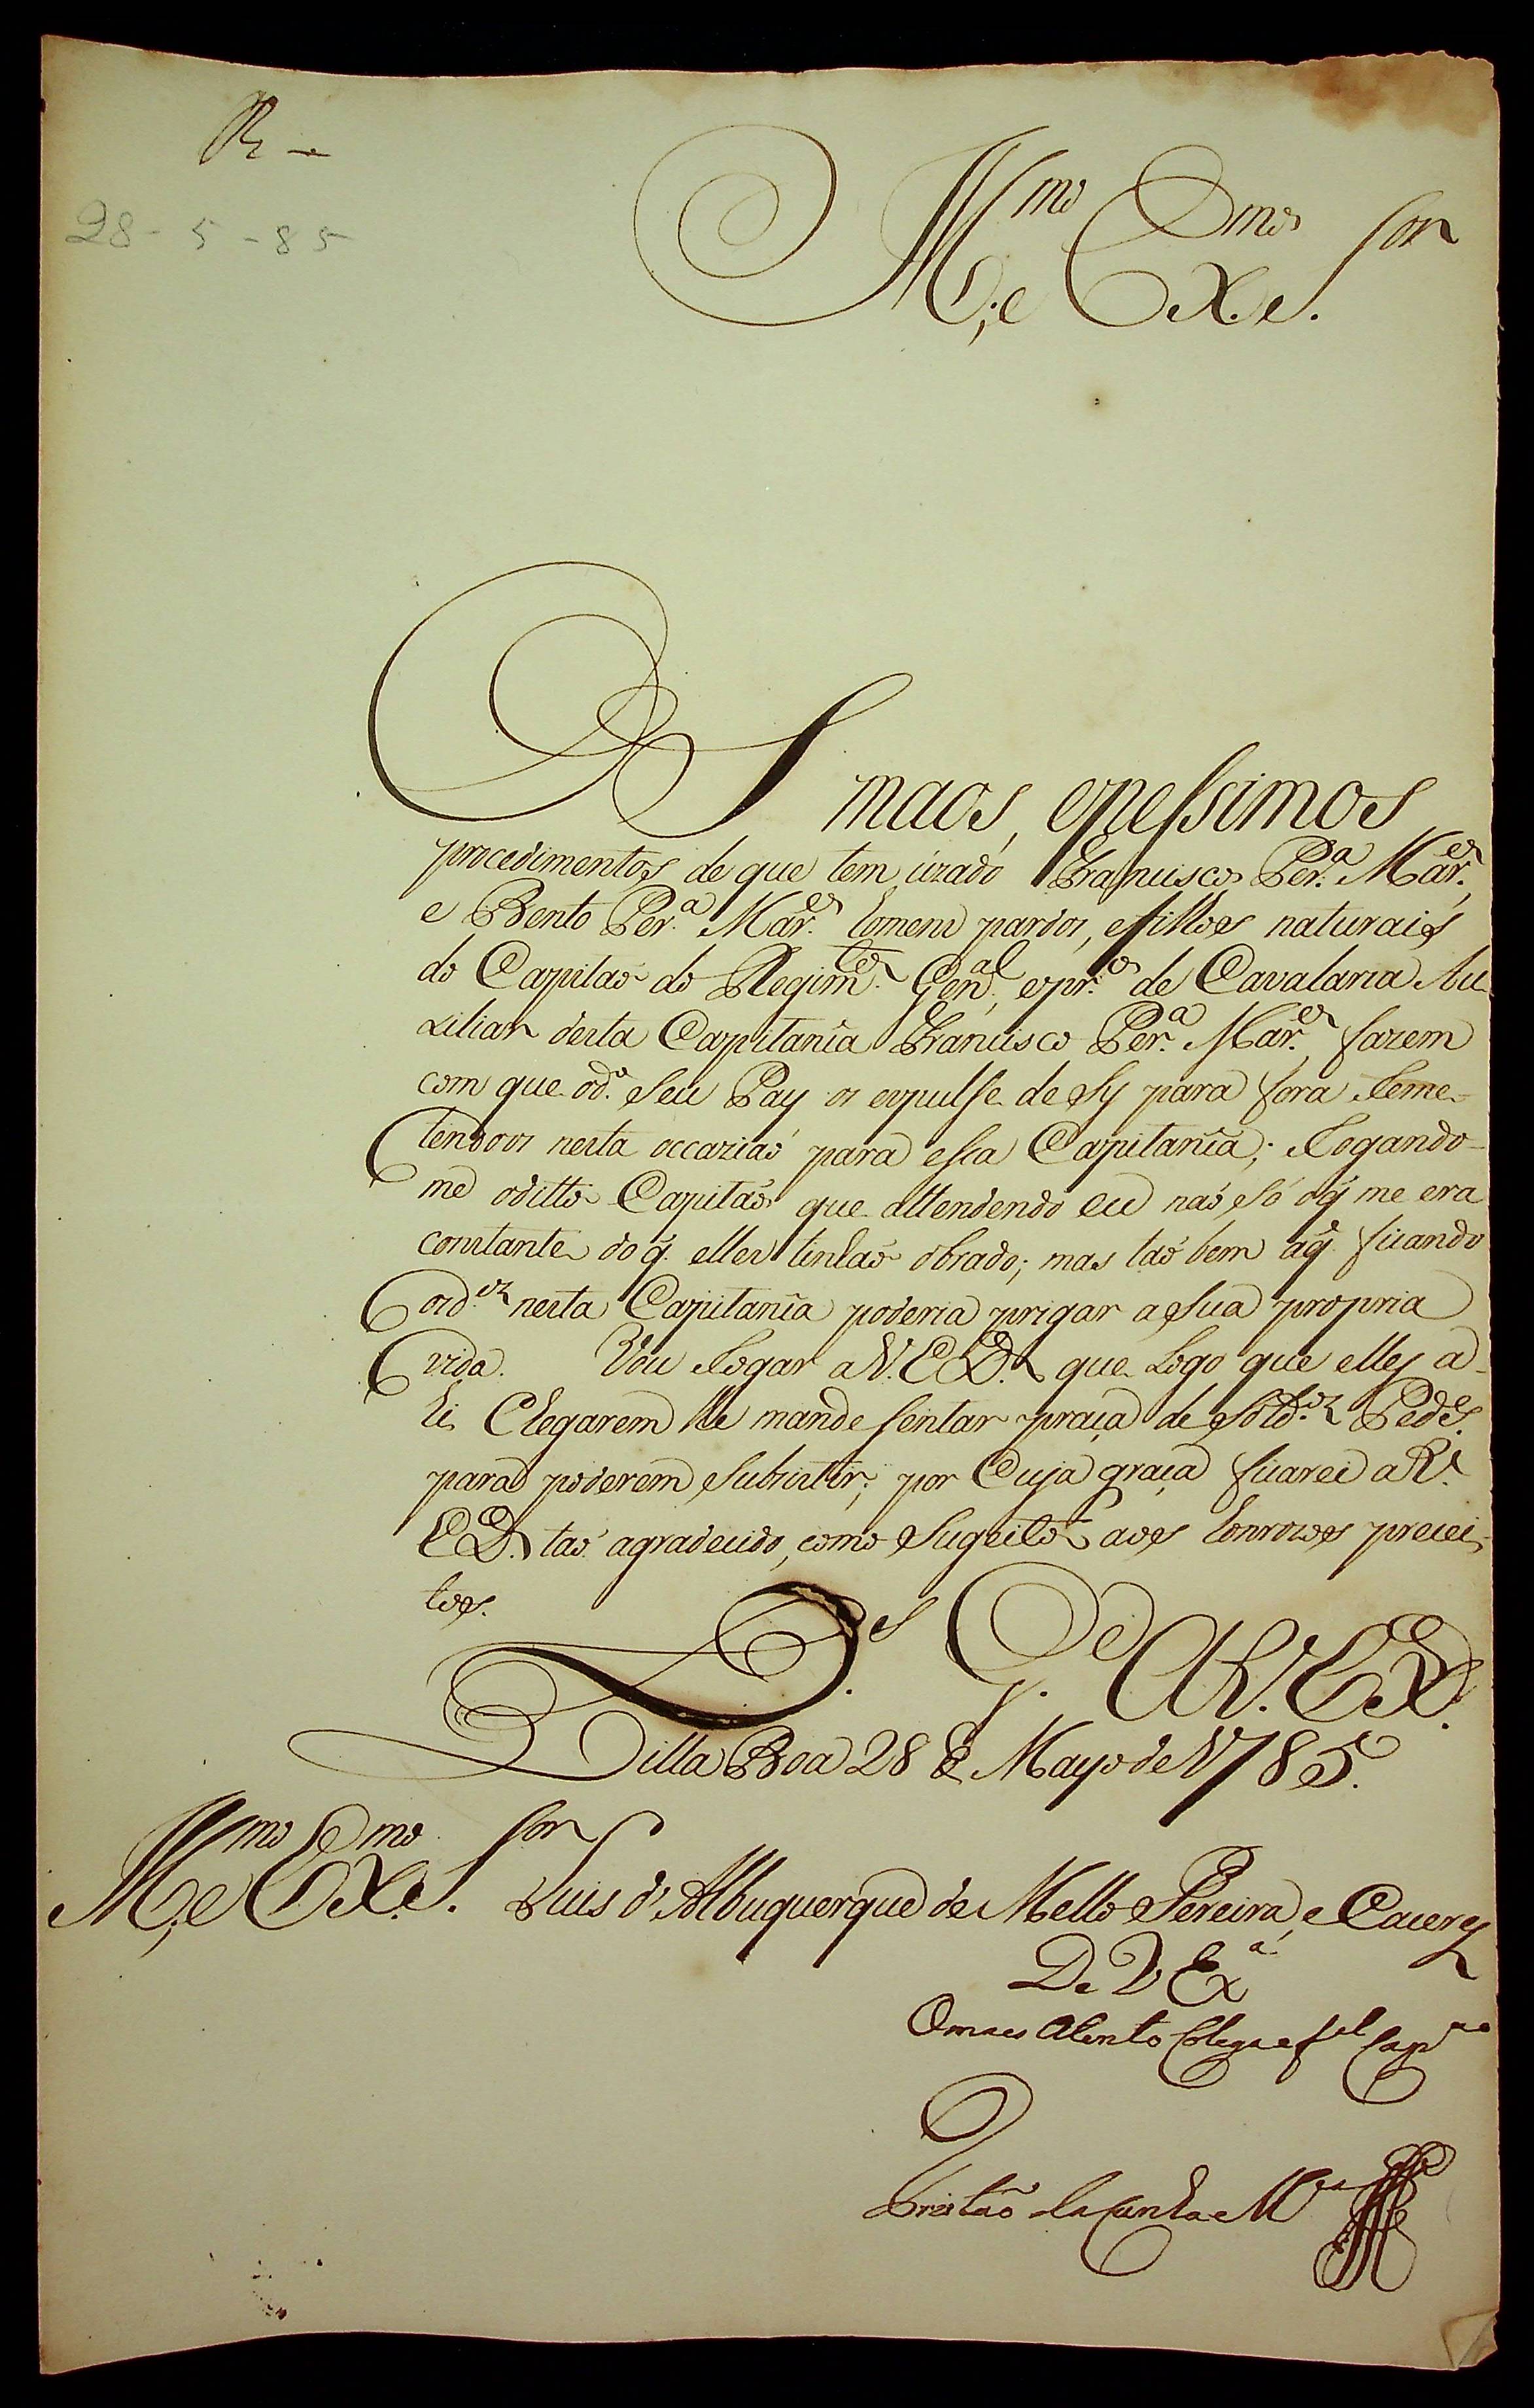 R.e
28-5-85
Ill.mo e Ex.mo S.or
OS maos, e pessimos
procedimentos de que tem uzado Francisco Per.a Mar.es
e Bento Per.a Mar.es homens pardos, e filhos naturais
do Capitaõ do Regim.to Gen.al, e pr.o de Cavalaria Au-
xiliar desta Capitania Francisco Per.a Mar.es, fazem
com que o d.o seu Pay os expulse de sy para fora reme-
tendoos nesta occaziaõ para essa Capitania; rogando-
me o ditto Capitaõ que attendendo eu naõ só o q̃ me era
constante do q̃ elles tinhaõ obrado; mas taõ bem a q̃ ficando
os d.os nesta Capitania poderia prigar a sua propria
vida. Vou rogar a V. EX. que logo que elles a-
hi chegarem lhe mande sentar praça de Sold.os Pedes.
para poderem subzistir; por cuja graça ficarei a V.
EX. taõ agradecido, como sugeito aos honrozos precei-
tos.
D.s G.e A V. EX.
Villa Boa 28 de Mayo de 1785.
Ill.mo e Ex.mo S.or Luis d'Albuquerque de Mello Pereira, e Caceres
De V Ex.a
O mais atento Colega e f.el Cap.vo
Tristaõ da Cunha e M.es